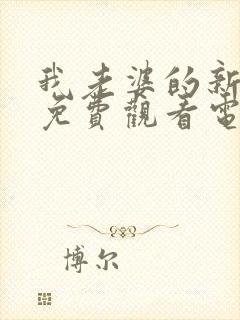 我老婆的新
免費觀看電
博尔